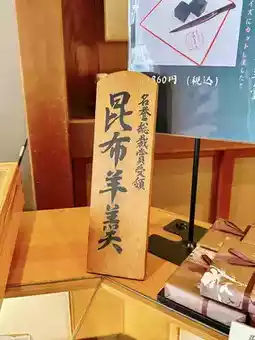 イズにカットしました
860円(税込)
名誉総裁賞受領
昆布羊羹